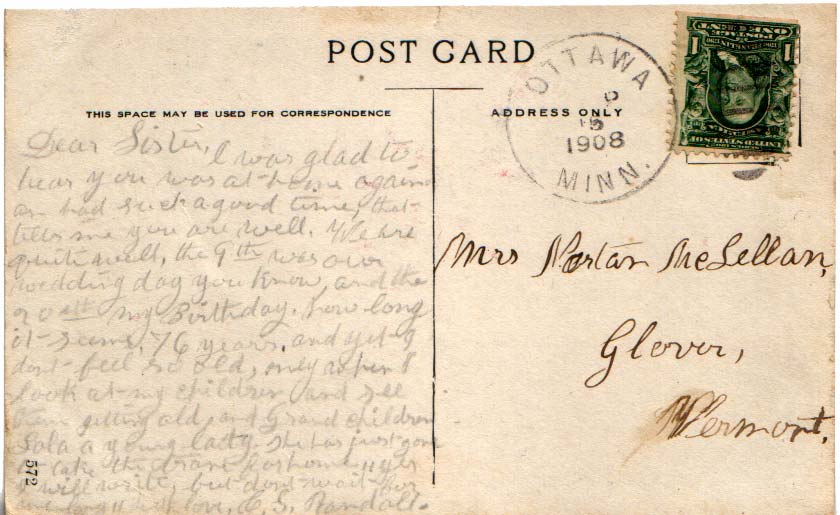 POST CARD
THIS SPACE MAY BE USED FOR CORRESPONDENCE
ADDRESS ONLY
OTTAWA
1908
MINN.
POSTAGE
ONE CENT
1 1
UNITED STATES OF
AMERICA
Dear Sister, I was glad to
hear you was at home again
an had such a good time, that
tells me you are well. We are
quite well, the 9th was our
wedding day you know, and the
20th my Birthday. how long
it seems, 76 years. and yet I
dont feel so old, only when I
look at my children and see
them getting old, and Grand children
Lola a young lady. She has just gone
to take the train for home
I will write, but dont wait for
love, C, S, Randall.
Mrs Nortan McLellan,
Glover,
Vermont.
572